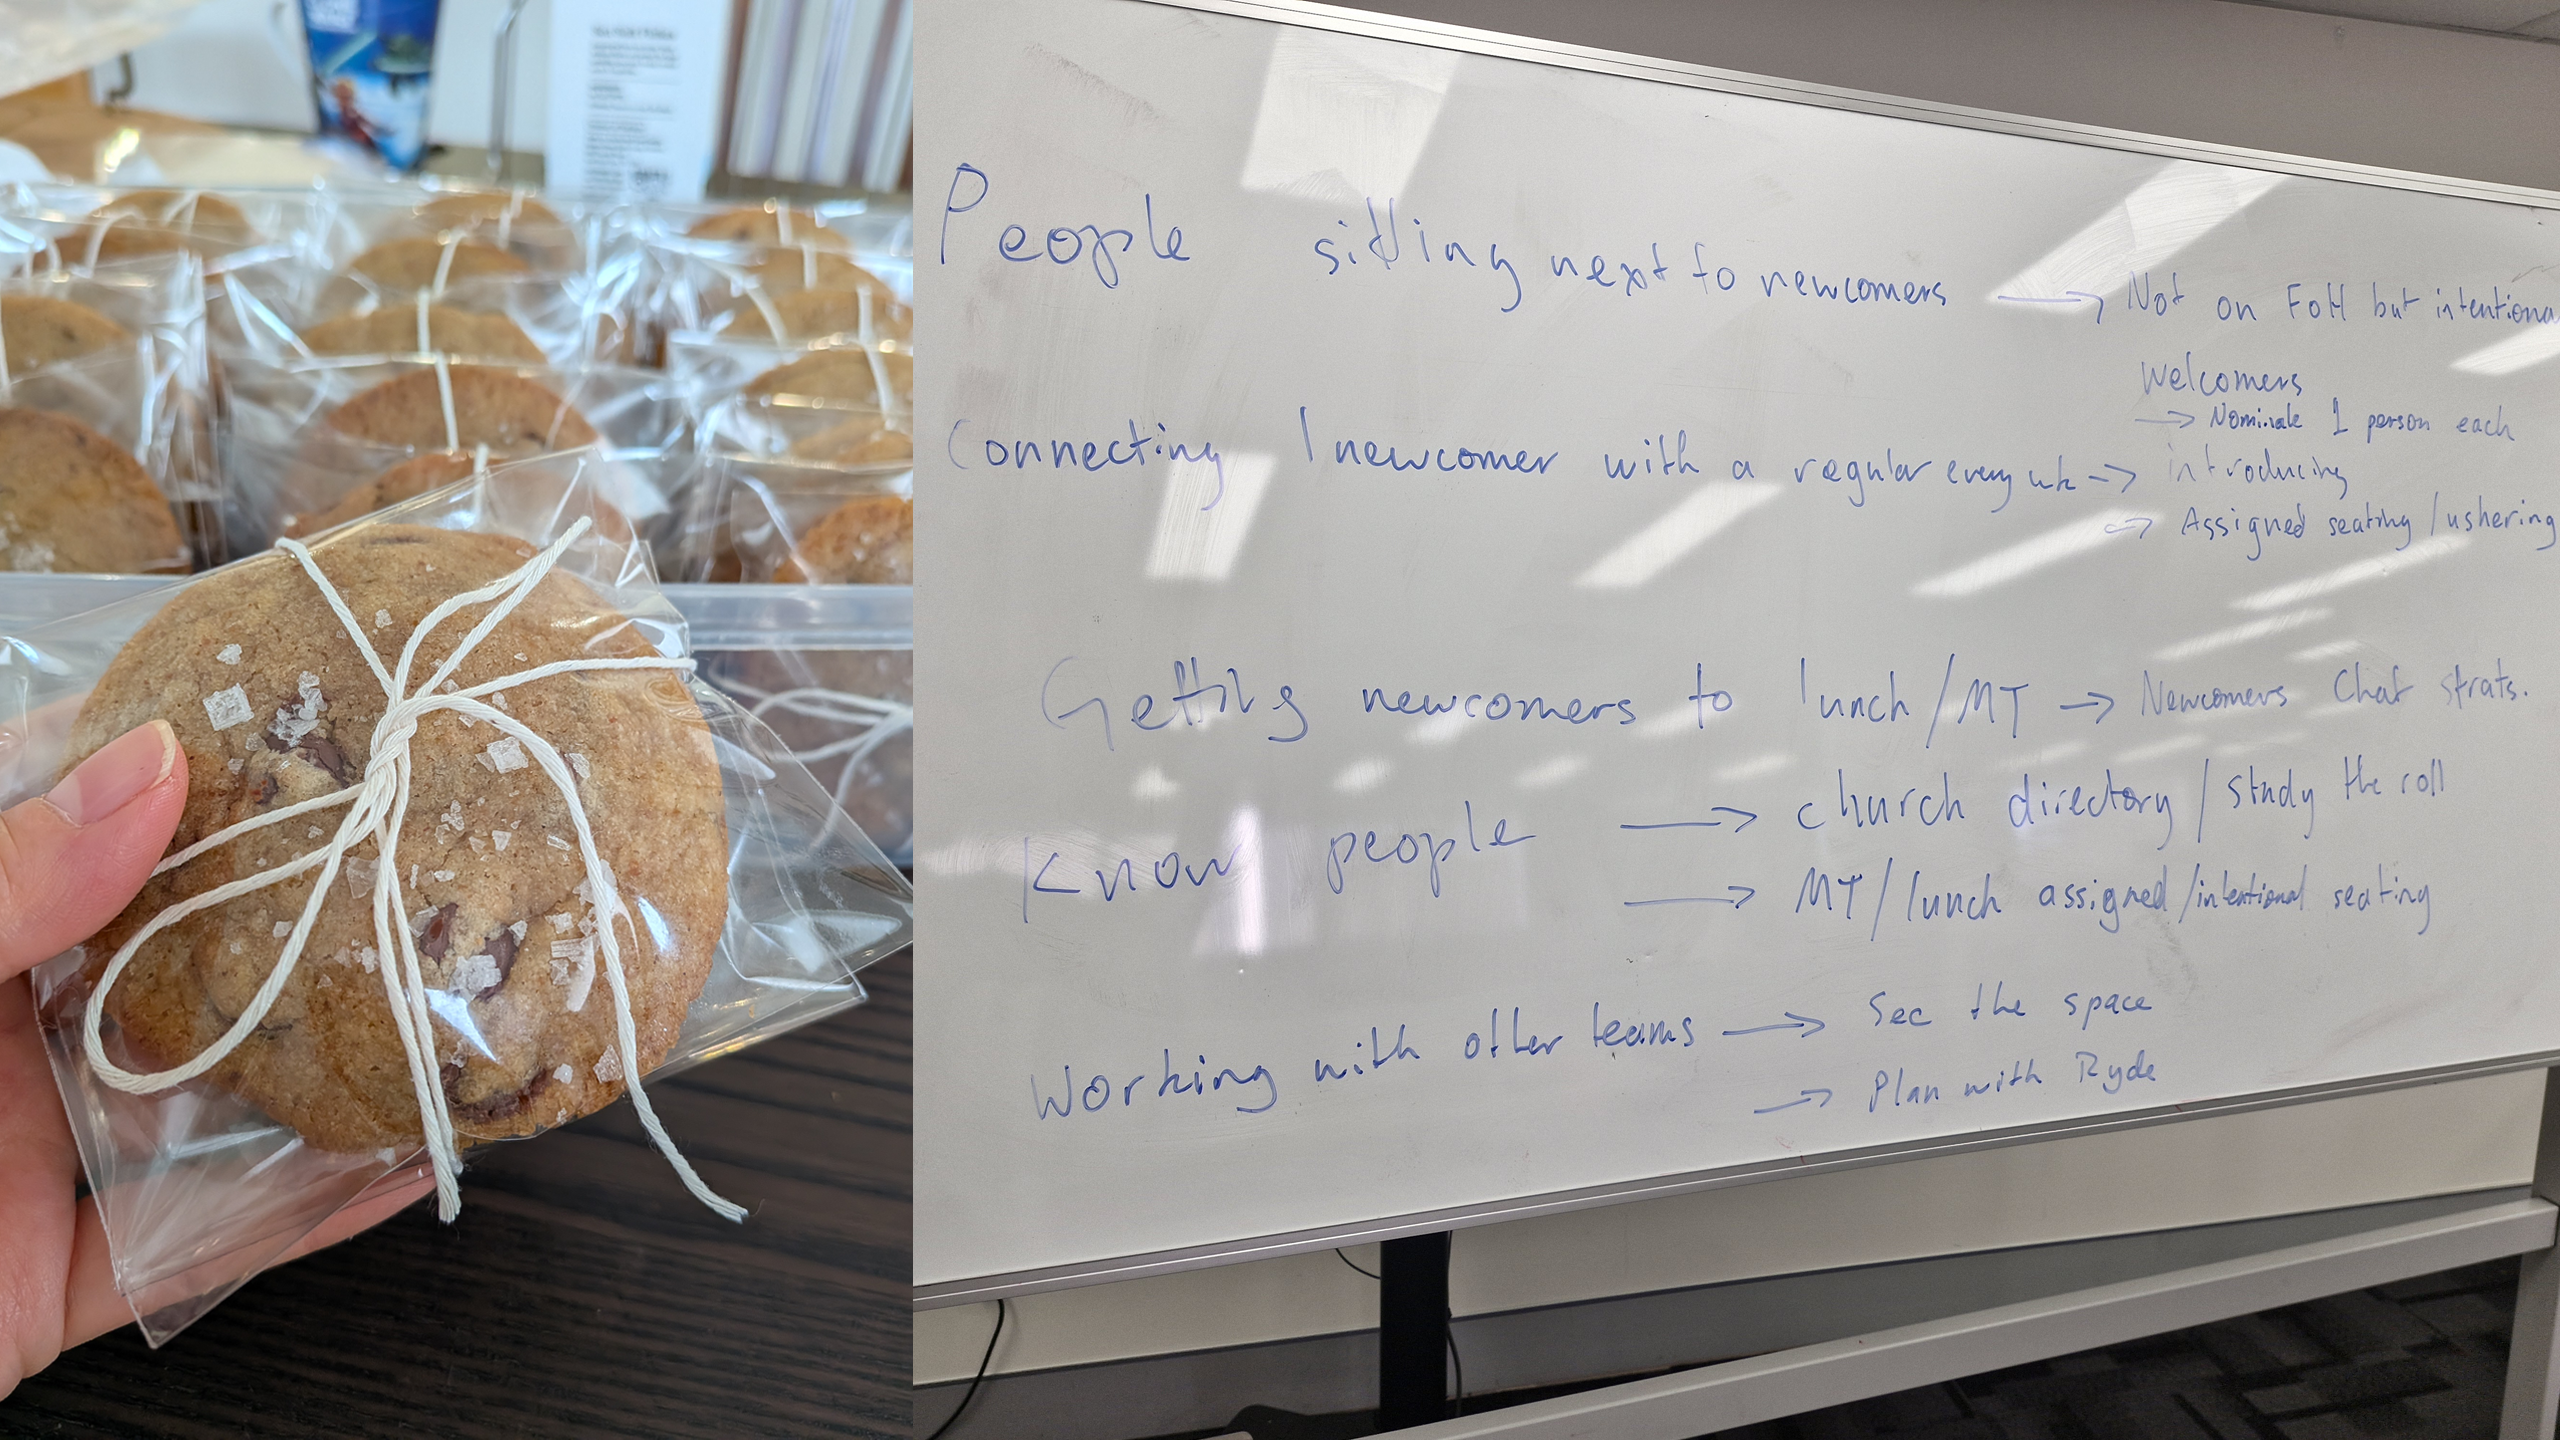 People sitting next to newcomers → Not on FoH but intentional
Welcomers
→ Nominate 1 person each
Connecting 1 newcomer with a regular every wk → introducing
→ Assigned seating / ushering
Getting newcomers to lunch/MT → Newcomers Chat strats.
Know people → church directory / study the roll
→ MT / lunch assigned / intentional seating
Working with other teams → See the space
→ Plan with Ryde